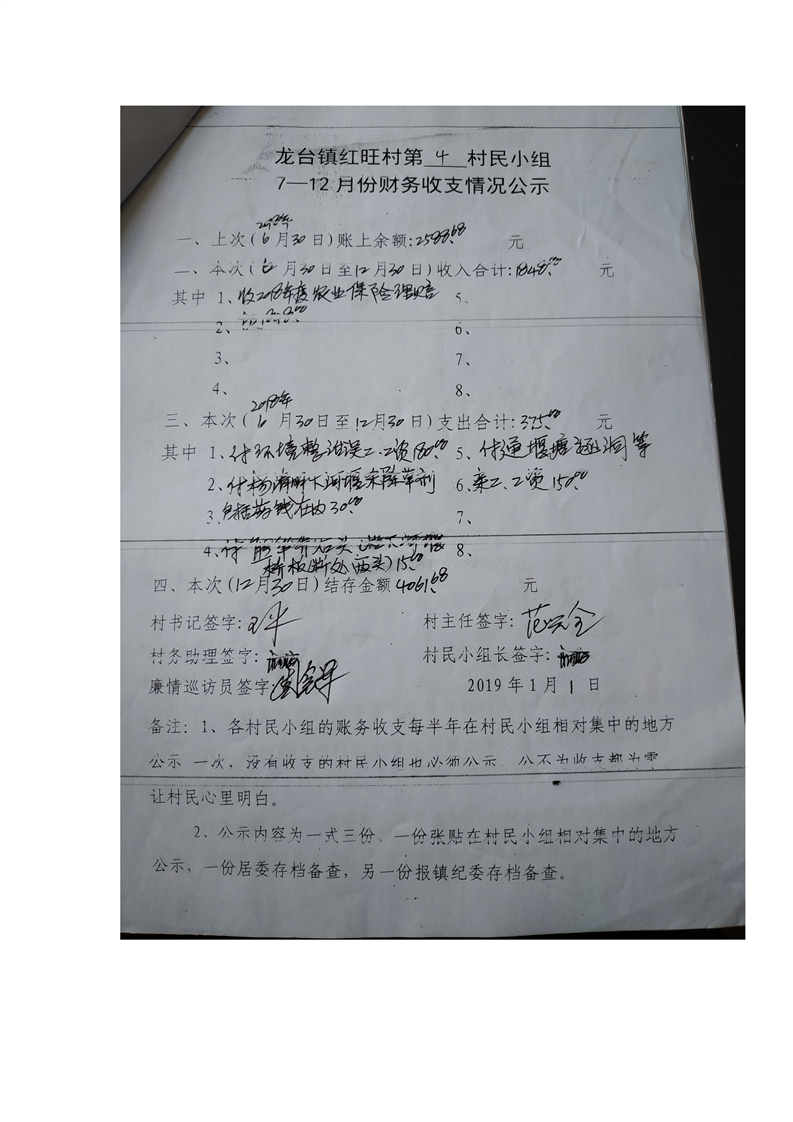 龙台镇红旺村第 4 村民小组
7—12月份财务收支情况公示
2018年
一、上次(6月30日)账上余额:2588.68 元
二、本次(6月30日至12月30日)收入合计:1848.00 元
其中 1、收2018年度农业保险理赔 5、
2、 6、
3、 7、
4、 8、
2018年
三、本次(6月30日至12月30日)支出合计:375.00 元
其中 1、付环境整治误工工资180.00 5、付通堰塘涵洞等
2、付杨 大河堰 除草剂 6、杂工工资150.00
3、包括药钱在内30.00 7、
4、付 石头 8、
桥板断处两头)15.00
四、本次(12月30日)结存金额4061.68 元
村书记签字: 村主任签字:范云全
村务助理签字: 村民小组长签字:
廉情巡访员签字: 2019年1月1日
备注:1、各村民小组的账务收支每半年在村民小组相对集中的地方
公示一次,没有收支的村民小组也必须公示,公示为收支都为零
让村民心里明白。
2、公示内容为一式三份、一份张贴在村民小组相对集中的地方
公示,一份居委存档备查,另一份报镇纪委存档备查。